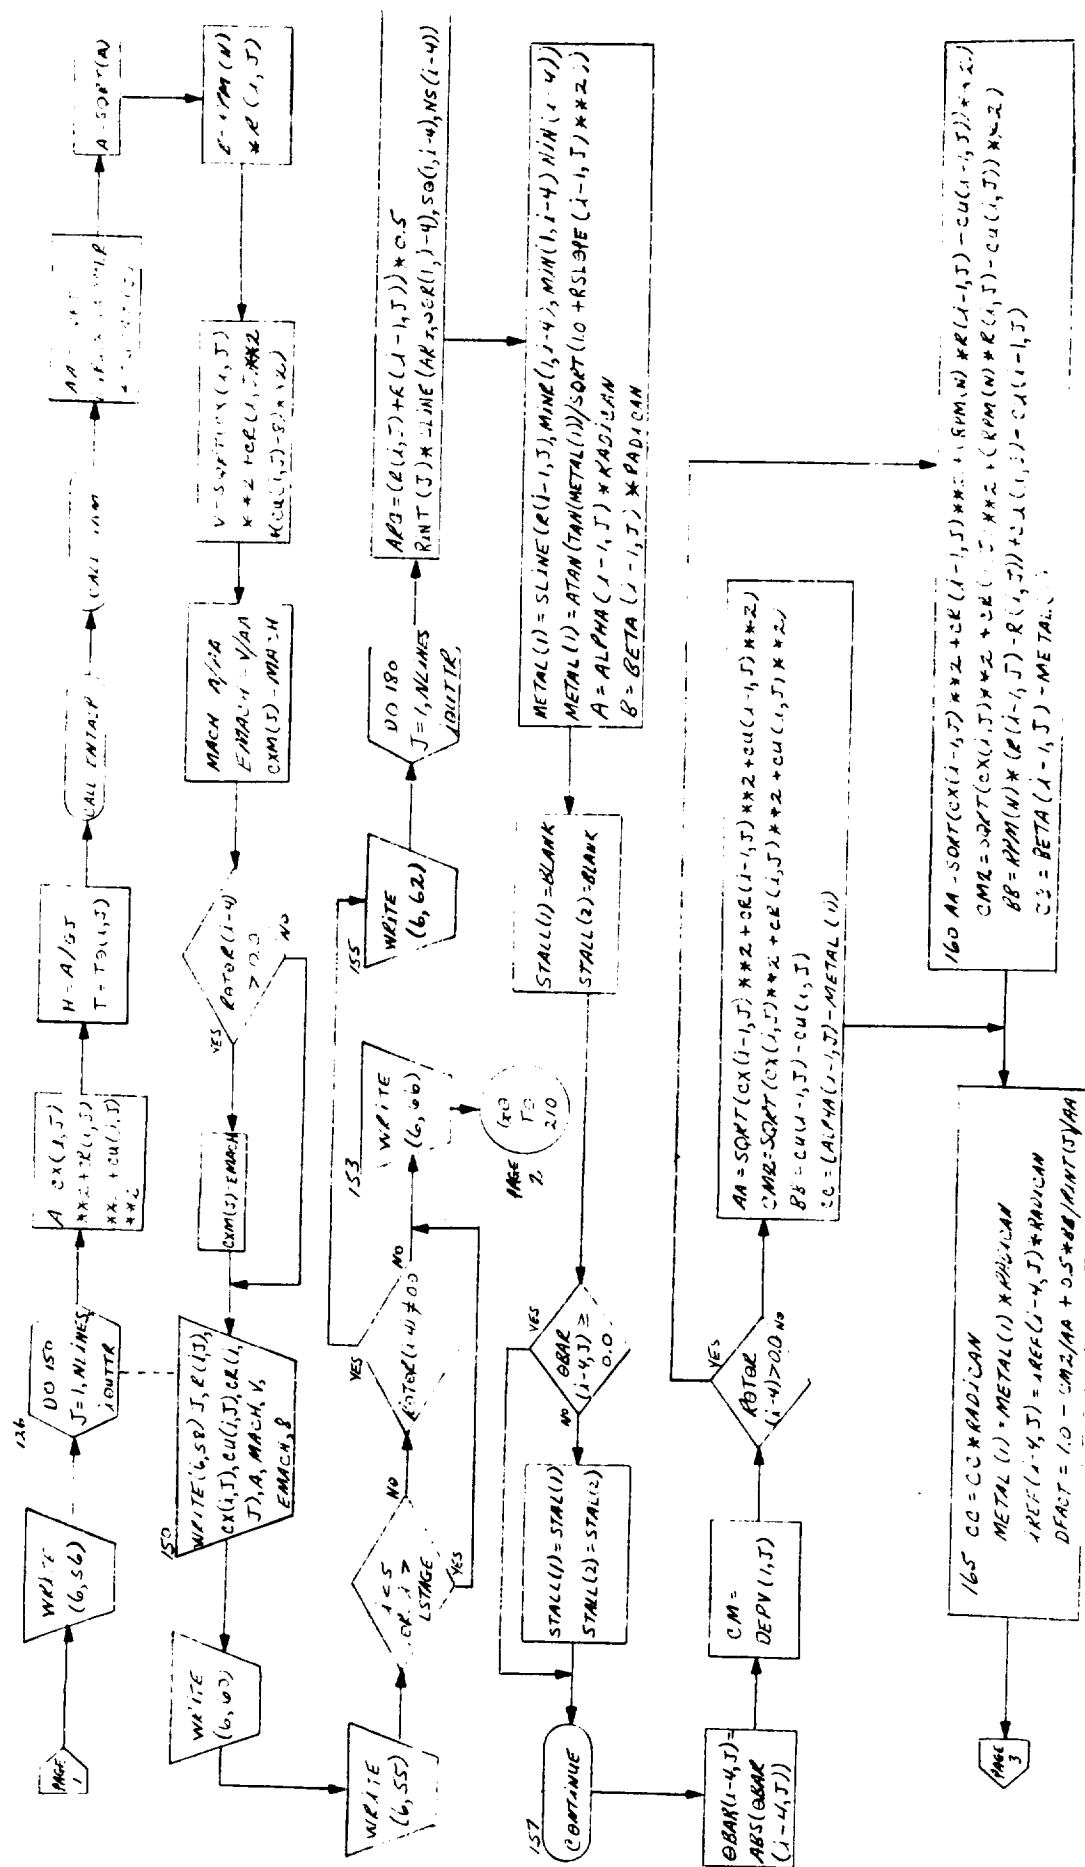 PAGE
1
WRITE
(6,56)
126
DO 150
J=1,NLINES,
IOUTTR
A CX(I,J)
**2+CR(I,J)
**2+CU(I,J)
**2
H=A/GJ
T=TO(I,J)
CALL ENTALP
CALL
AA
A=SQRT(A)
RPM(N)
*R(I,J)
V=SQRT(CX(I,J)
**2+CR(I,J)**2
+(CU(I,J)-B)**2)
MACH A/AA
EMACH=V/AA
CXM(J)=MACH
ROTOR(I-4)
>0.0
YES
NO
CXM(J)=EMACH
150
WRITE(6,58) J,R(I,J),
CX(I,J),CU(I,J),CR(I,
J),A,MACH,V,
EMACH,B
WRITE
(6,60)
WRITE
(6,55)
I<5
OR I>
LSTAGE
NO
YES
ROTOR(I-4)≠0.0
YES
NO
153
WRITE
(6,66)
GO
TO
210
PAGE
2
155
WRITE
(6,62)
DO 180
J=1,NLINES
IOUTTR
ARG=(R(I,J)+R(I-1,J))*0.5
RINT(J)=SLINE(ARG,SER(1,I-4),SO(1,I-4),NS(I-4))
METAL(1)=SLINE(R(I-1,J),MINR(1,I-4),MIN(1,I-4) NIN(I-4))
METAL(1)=ATAN(TAN(METAL(1))/SQRT(1.0+RSLOPE(I-1,J)**2))
A=ALPHA(I-1,J)*RADICAN
B=BETA(I-1,J)*RADICAN
STALL(1)=BLANK
STALL(2)=BLANK
OBAR
(I-4,J)≥
0.0
YES
NO
STALL(1)=STAL(1)
STALL(2)=STAL(2)
157
CONTINUE
OBAR(I-4,J)=
ABS(OBAR
(I-4,J))
CM=
DEPV(I,J)
ROTOR
(I-4)>0.0
YES
NO
AA=SQRT(CX(I-1,J)**2+CR(I-1,J)**2+CU(I-1,J)**2)
CM2=SQRT(CX(I,J)**2+CR(I,J)**2+CU(I,J)**2)
BB=CU(I-1,J)-CU(I,J)
CC=(ALPHA(I-1,J)-METAL(1))
160 AA=SQRT(CX(I-1,J)**2+CR(I-1,J)**2+(RPM(N)*R(I-1,J)-CU(I-1,J))**2)
CM2=SQRT(CX(I,J)**2+CR(I,J)**2+(RPM(N)*R(I,J)-CU(I,J))**2)
BB=RPM(N)*(R(I-1,J)-R(I,J))+CU(I,J)-CU(I-1,J)
CC=BETA(I-1,J)-METAL
165 CC=CC*RADICAN
METAL(1)=METAL(1)*RADICAN
IREF(I-4,J)=IREF(I-4,J)*RADICAN
DFACT=1.0-CM2/AA+0.5*BB/RINT(J)/AA
PAGE
3